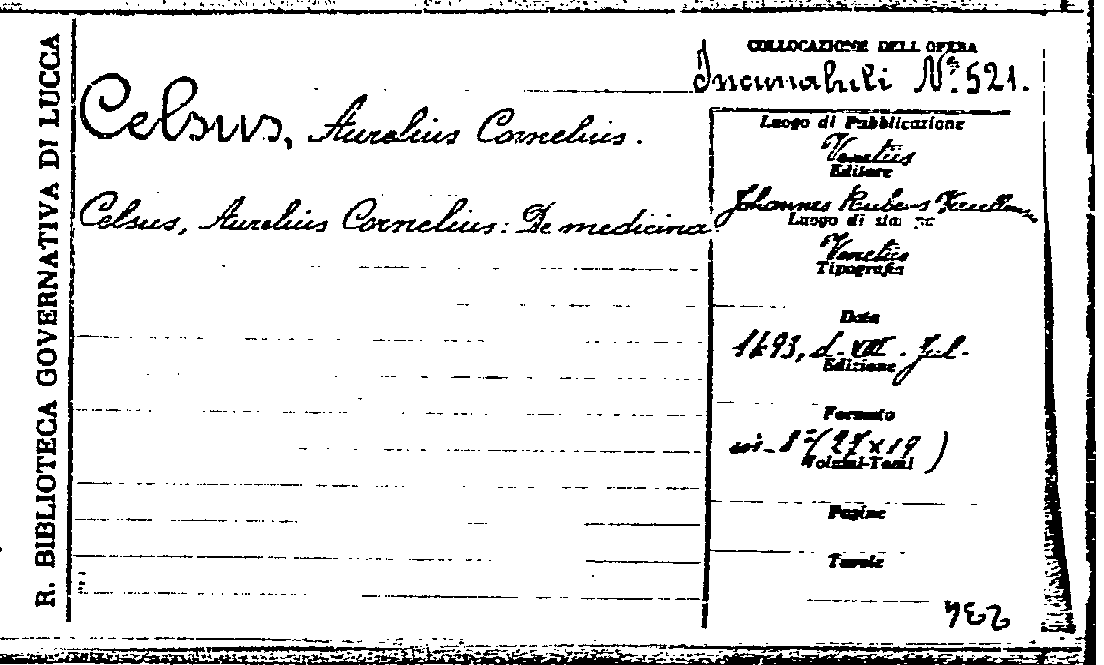 R. BIBLIOTECA GOVERNATIVA DI LUCCA
COLLOCAZIONE DELL OPERA
Incunabuli Nº. 521.
Celsus, Aurelius Cornelius.
Celsus, Aurelius Cornelius: De medicina
Luogo di Pubblicazione
Venetiis
Editore
Johannes Rubeus
Luogo di
Venetiis
Tipografia
Data
1493, d. VIII. Jul.
Edizione
Formato
in- 8º (27 x 19)
Volumi-Tomi
Pagine
Tavole